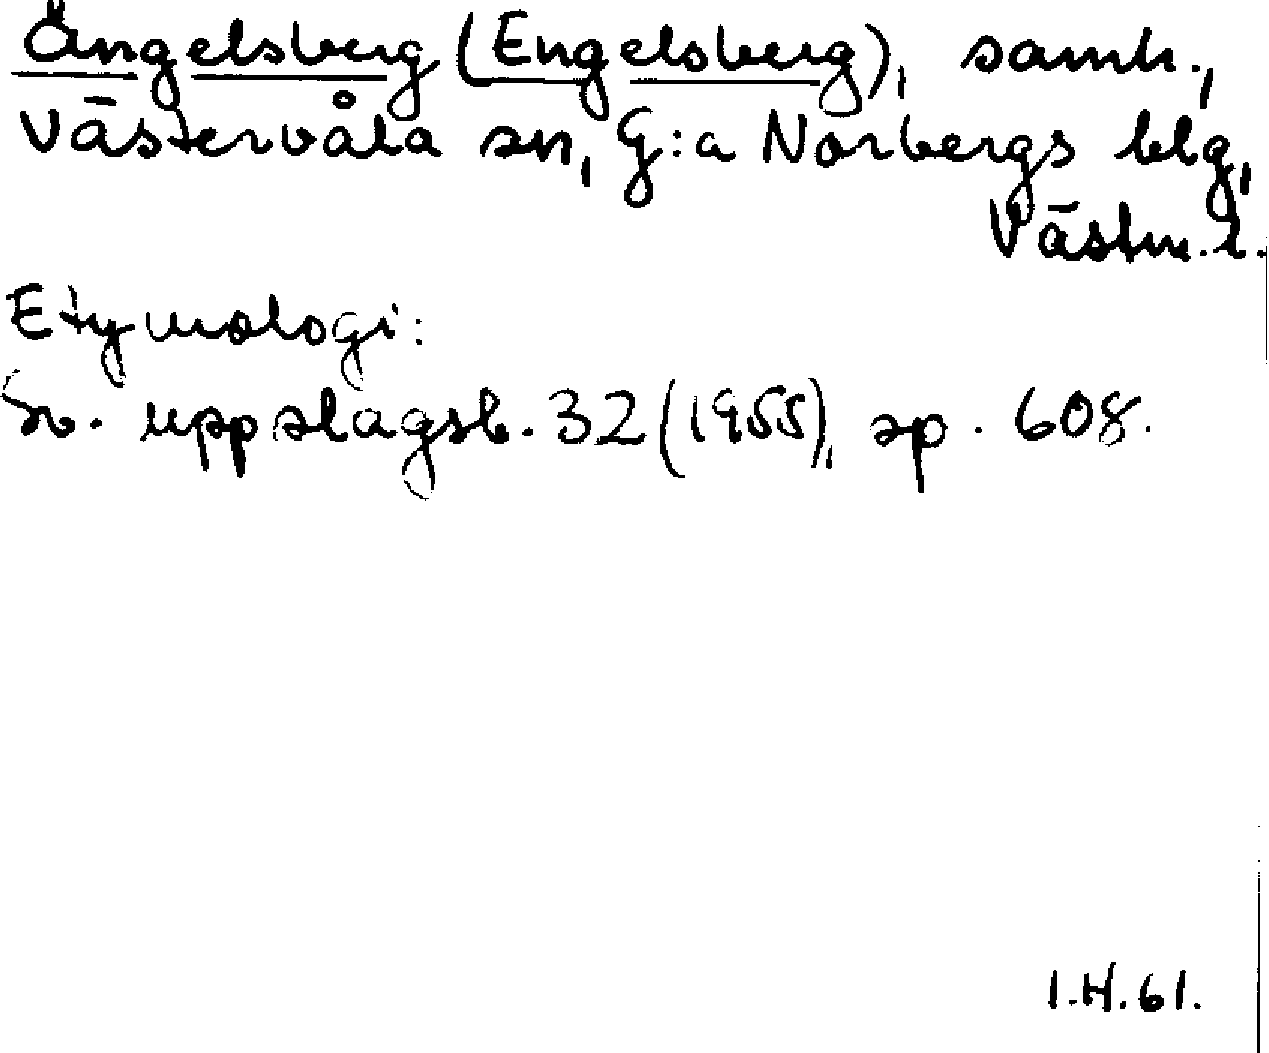 Ängelsberg (Engelsberg), samh.,
Västervåla sn, G:a Norbergs blg,
Västm. l.
Etymologi:
Sv. uppslagsb. 32 (1955), sp. 608.
I.H.61.